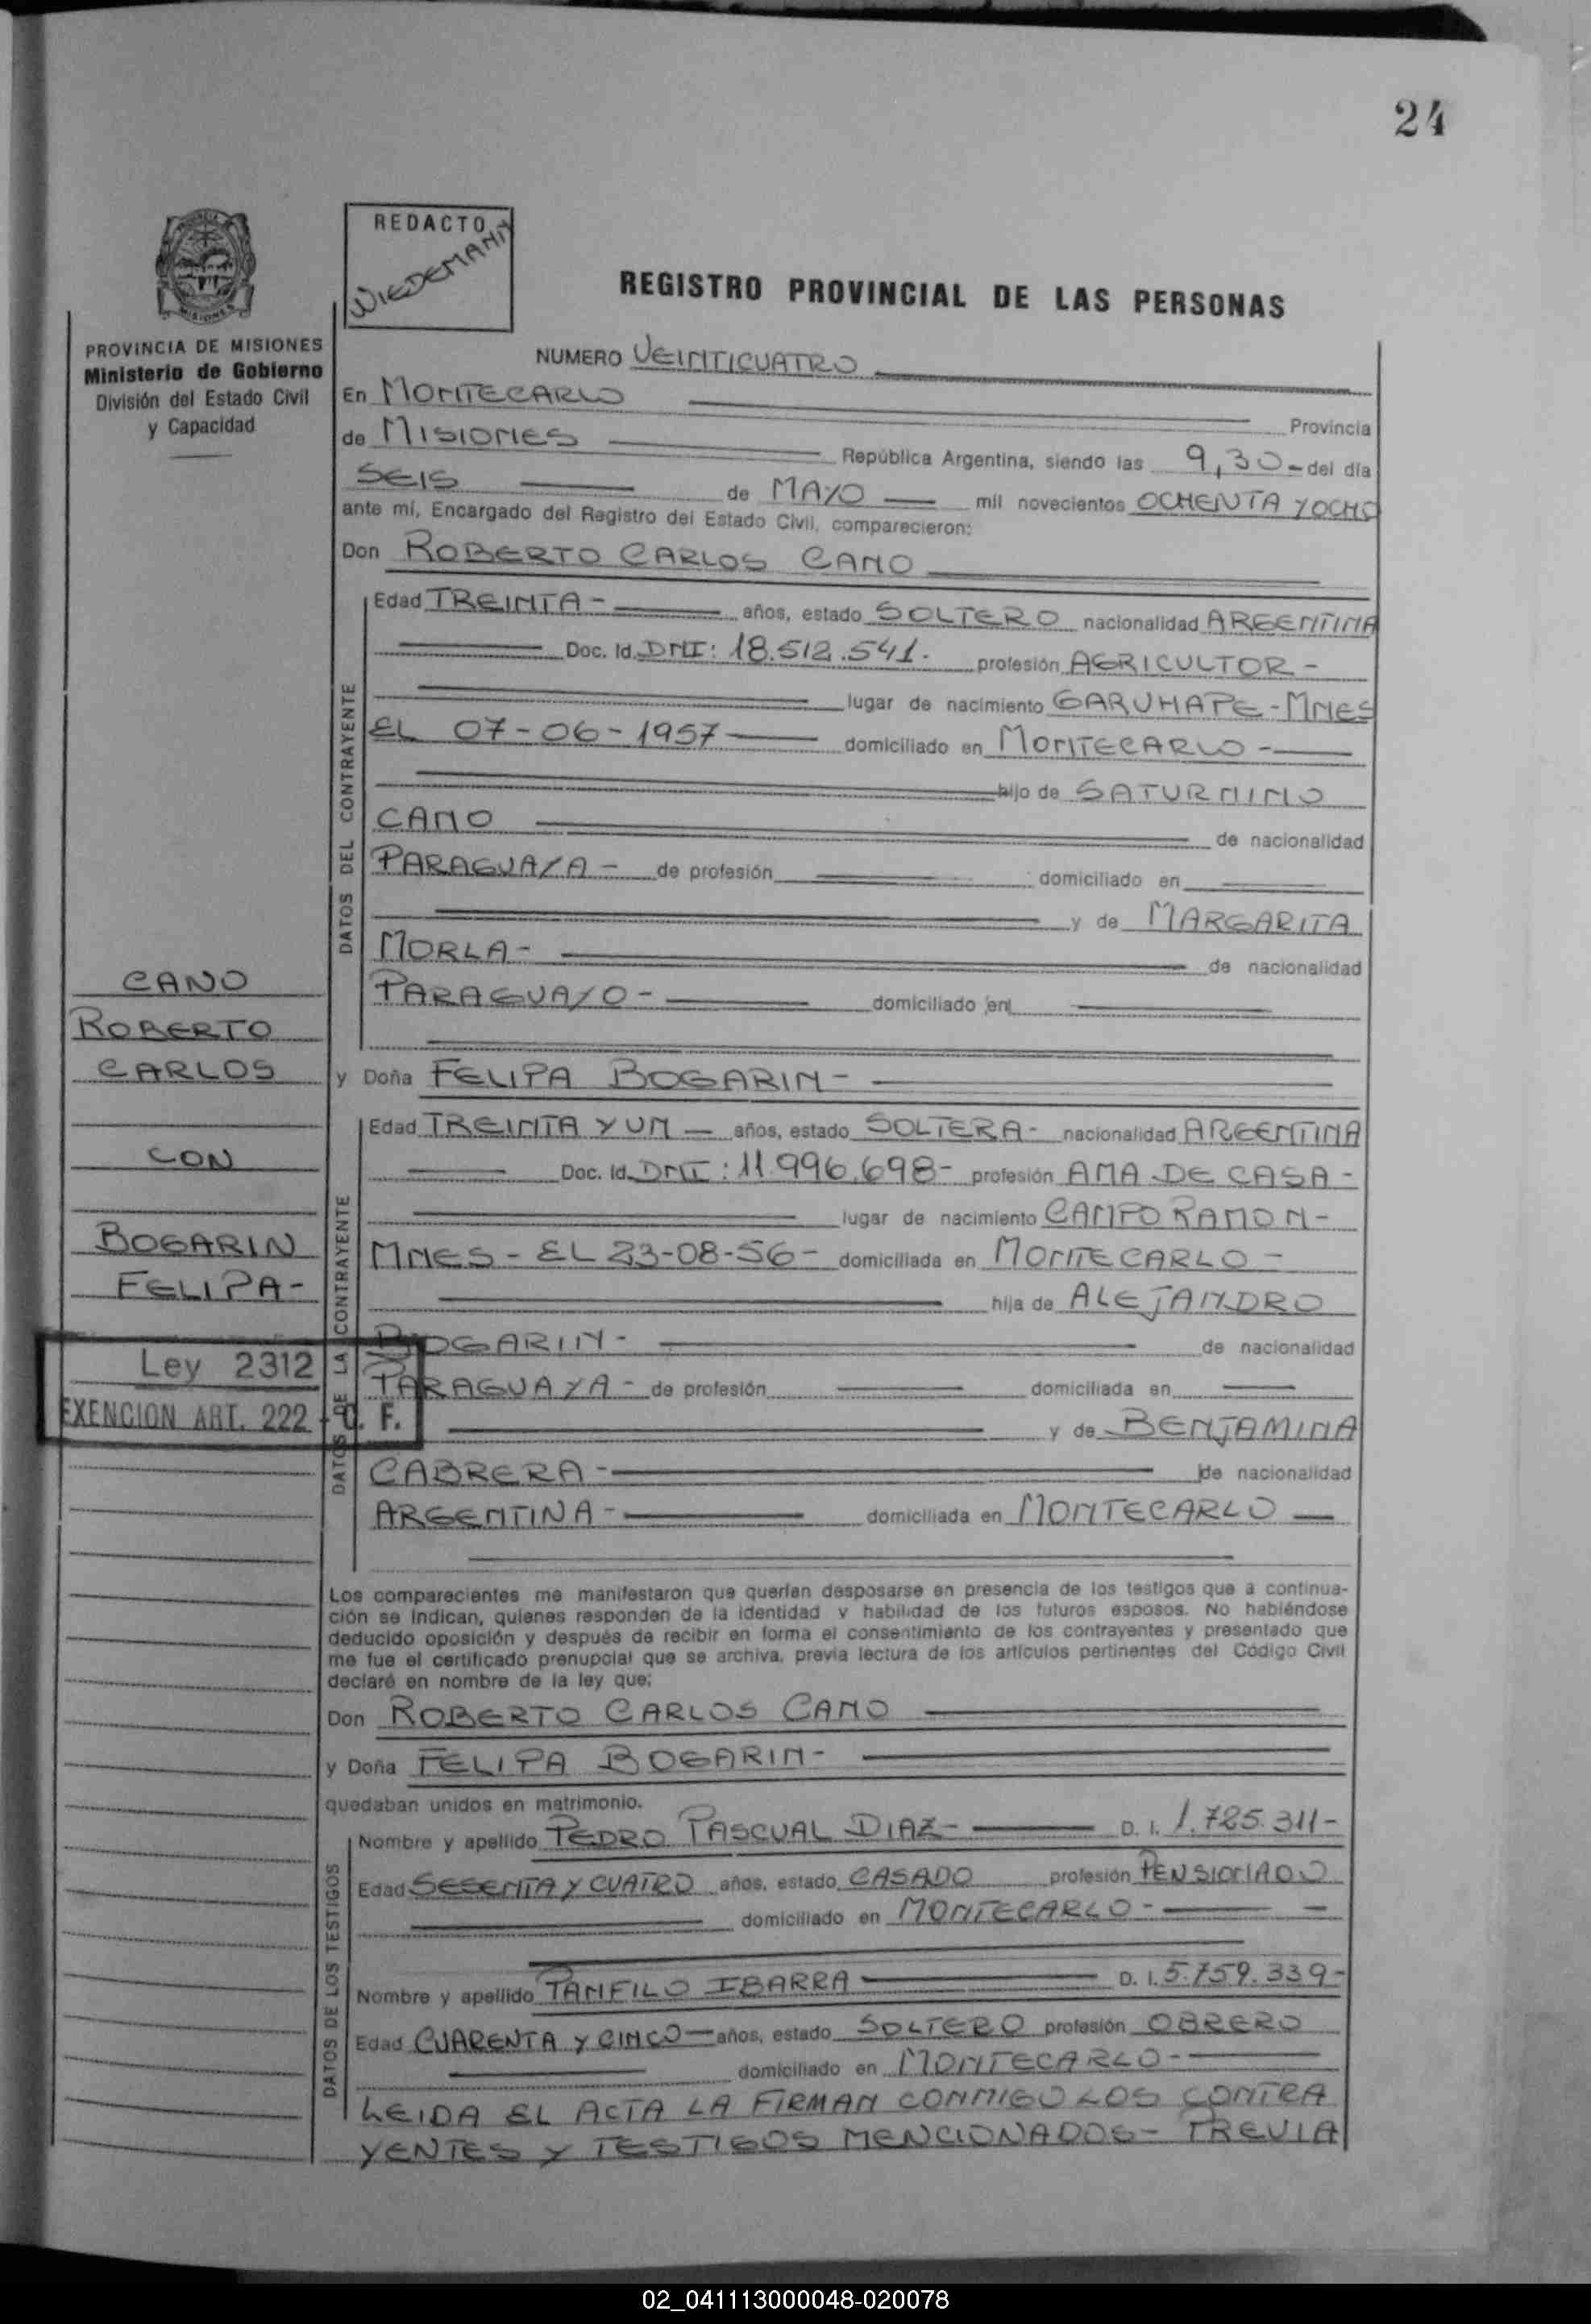 24
REDACTO
WIEDEMANN
REGISTRO PROVINCIAL DE LAS PERSONAS
PROVINCIA DE MISIONES
Ministerio de Gobierno
División del Estado Civil
y Capacidad
NUMERO VEINTICUATRO
En MONTECARLO
Provincia
de MISIONES República Argentina, siendo las 9,30 - del día
SEIS de MAYO mil novecientos OCHENTA Y OCHO
ante mí, Encargado del Registro del Estado Civil, comparecieron:
Don ROBERTO CARLOS CANO
DATOS DEL CONTRAYENTE
Edad TREINTA - años, estado SOLTERO nacionalidad ARGENTINA
Doc. Id. DNI: 18.512.541. profesión AGRICULTOR -
lugar de nacimiento GARUHAPE - MNES
EL 07-06-1957 domiciliado en MONTECARLO -
hijo de SATURNINO
CANO de nacionalidad
PARAGUAYA - de profesión domiciliado en
y de MARGARITA
MORLA - de nacionalidad
PARAGUAYO - domiciliado en
y Doña FELIPA BOGARIN -
DATOS DE LA CONTRAYENTE
Edad TREINTA Y UN años, estado SOLTERA - nacionalidad ARGENTINA
Doc. Id. DNI: 11.996.698 - profesión AMA DE CASA -
lugar de nacimiento CAMPO RAMON -
MNES - EL 23-08-56 - domiciliada en MONTECARLO -
hija de ALEJANDRO
BOGARIN - de nacionalidad
PARAGUAYA - de profesión domiciliada en
y de BENJAMINA
CABRERA - de nacionalidad
ARGENTINA - domiciliada en MONTECARLO
CANO
ROBERTO
CARLOS
CON
BOGARIN
FELIPA -
Ley 2312
EXENCION ART. 222 - C. F.
Los comparecientes me manifestaron que querían desposarse en presencia de los testigos que a continua-
ción se indican, quienes responden de la identidad y habilidad de los futuros esposos. No habiéndose
deducido oposición y después de recibir en forma el consentimiento de los contrayentes y presentado que
me fue el certificado prenupcial que se archiva, previa lectura de los artículos pertinentes del Código Civil
declaré en nombre de la ley que:
Don ROBERTO CARLOS CANO
y Doña FELIPA BOGARIN -
quedaban unidos en matrimonio.
DATOS DE LOS TESTIGOS
Nombre y apellido PEDRO PASCUAL DIAZ - D. I. 1.725.311 -
Edad SESENTA Y CUATRO años, estado CASADO profesión PENSIONADO
domiciliado en MONTECARLO -
Nombre y apellido PANFILO IBARRA D. I. 5.759.339 -
Edad CUARENTA Y CINCO años, estado SOLTERO profesión OBRERO
domiciliado en MONTECARLO -
LEIDA EL ACTA LA FIRMAN CONMIGO LOS CONTRA
YENTES Y TESTIGOS MENCIONADOS - PREVIA
02_041113000048-020078